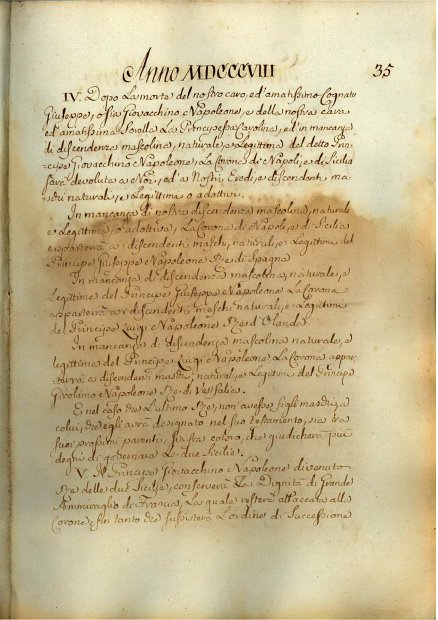 Anno MDCCCVIII 35
IV. Dopo La morte del nostro caro, ed'amatissimo Cognato
Giuseppe, o sia Giovacchino Napoleone, e della nostra cara
ed'amatissima Sorella La Principessa Carolina, ed'in mancanza
di discendenza mascolina, naturale, e Legittima del detto Prin=
cipe Giovacchino Napoleone, La Corona di Napoli, e di Sicilia
sarà devoluta a Noi, ed'a Nostri Eredi, e discendenti ma=
schi naturali, e Legittimi o adottivi.
In mancanza di nostra discendenza mascolina, naturale
e Legittima, o adottiva, La Corona di Napoli, e di Sicilia
apparterrà a i discendenti maschi, naturali, e Legittimi del
Principe Giuseppe Napoleone Re di Spagna
In mancanza di discendenza mascolina, naturale, e
Legittima del Principe Giuseppe Napoleone La Corona
apparterrà a i discendenti maschi naturali, e Legittimi
del Principe Luigi Napoleone Re d'Olanda
In mancanza di discendenza mascolina naturale, e
legittima del Principe Luigi Napoleone La Corona appar=
terrà a discendenti maschi, naturali, e Legittimi del Principe
Girolamo Napoleone Re di Vestfalia.
E nel caso che L'ultimo Re, non avesse figli maschi, a
colui, che egli avrà designato nel suo testamento, sia tra
suoi prossimi parenti, sia fra coloro, che giudicherà più
degni di governare Le due Sicilie.
V. Il Principe Giovacchino Napoleone divenuto
Re delle due Sicilie, conserverà La Dignità di Grande
Ammiraglio di Francia, La quale resterà attaccata alla
Corona, fin tanto che sussisterà L'ordine di Successione